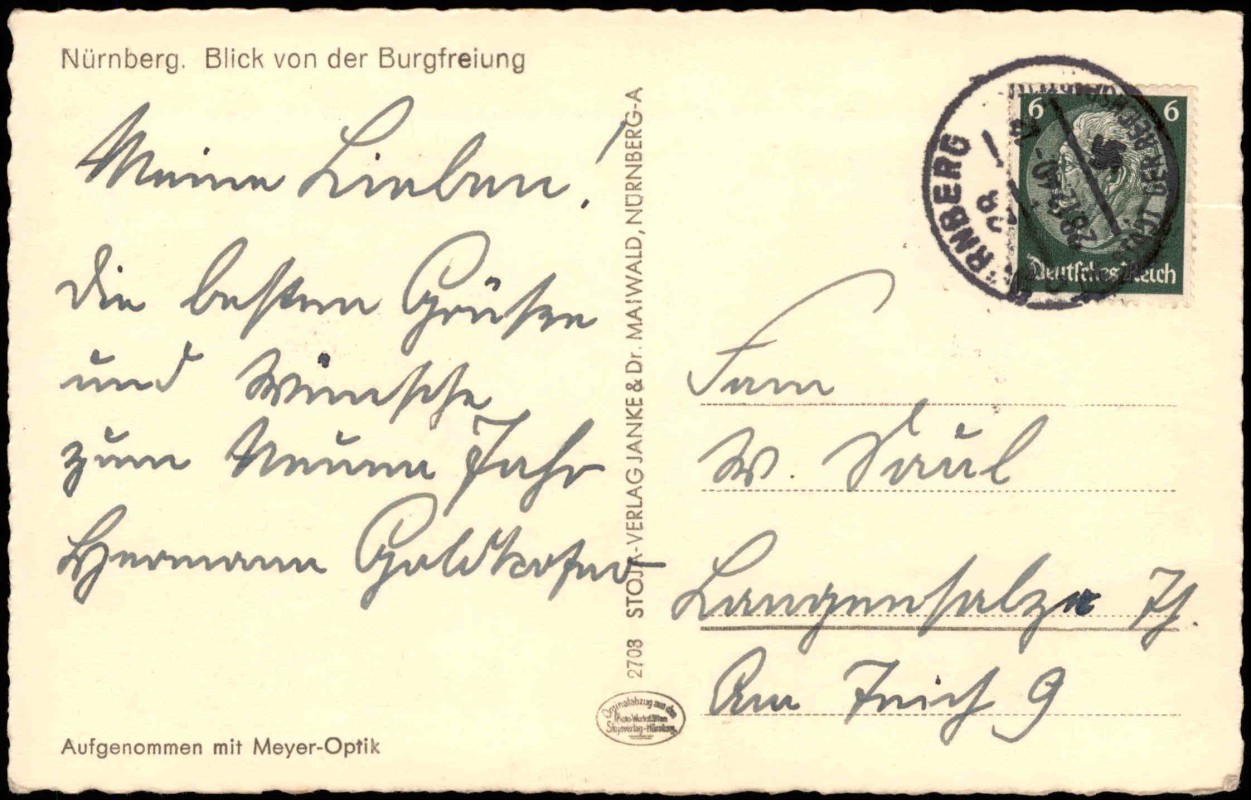 Nürnberg. Blick von der Burgfreiung
Meine Lieben!
die besten Grüße
und Wünsche
zum Neuen Jahr
Hermann Goldhofer
Aufgenommen mit Meyer-Optik
2708 STOJA-VERLAG JANKE & Dr. MAIWALD, NÜRNBERG-A
Originalabzug aus den
Photo-Werkstätten
Stojaverlag-Nürnberg
NÜRNBERG
28.12.40
DER REICHSPARTEITAGE
6 6
Deutsches Reich
Fam
W. Saul
Langensalza Th
Am Teich 9